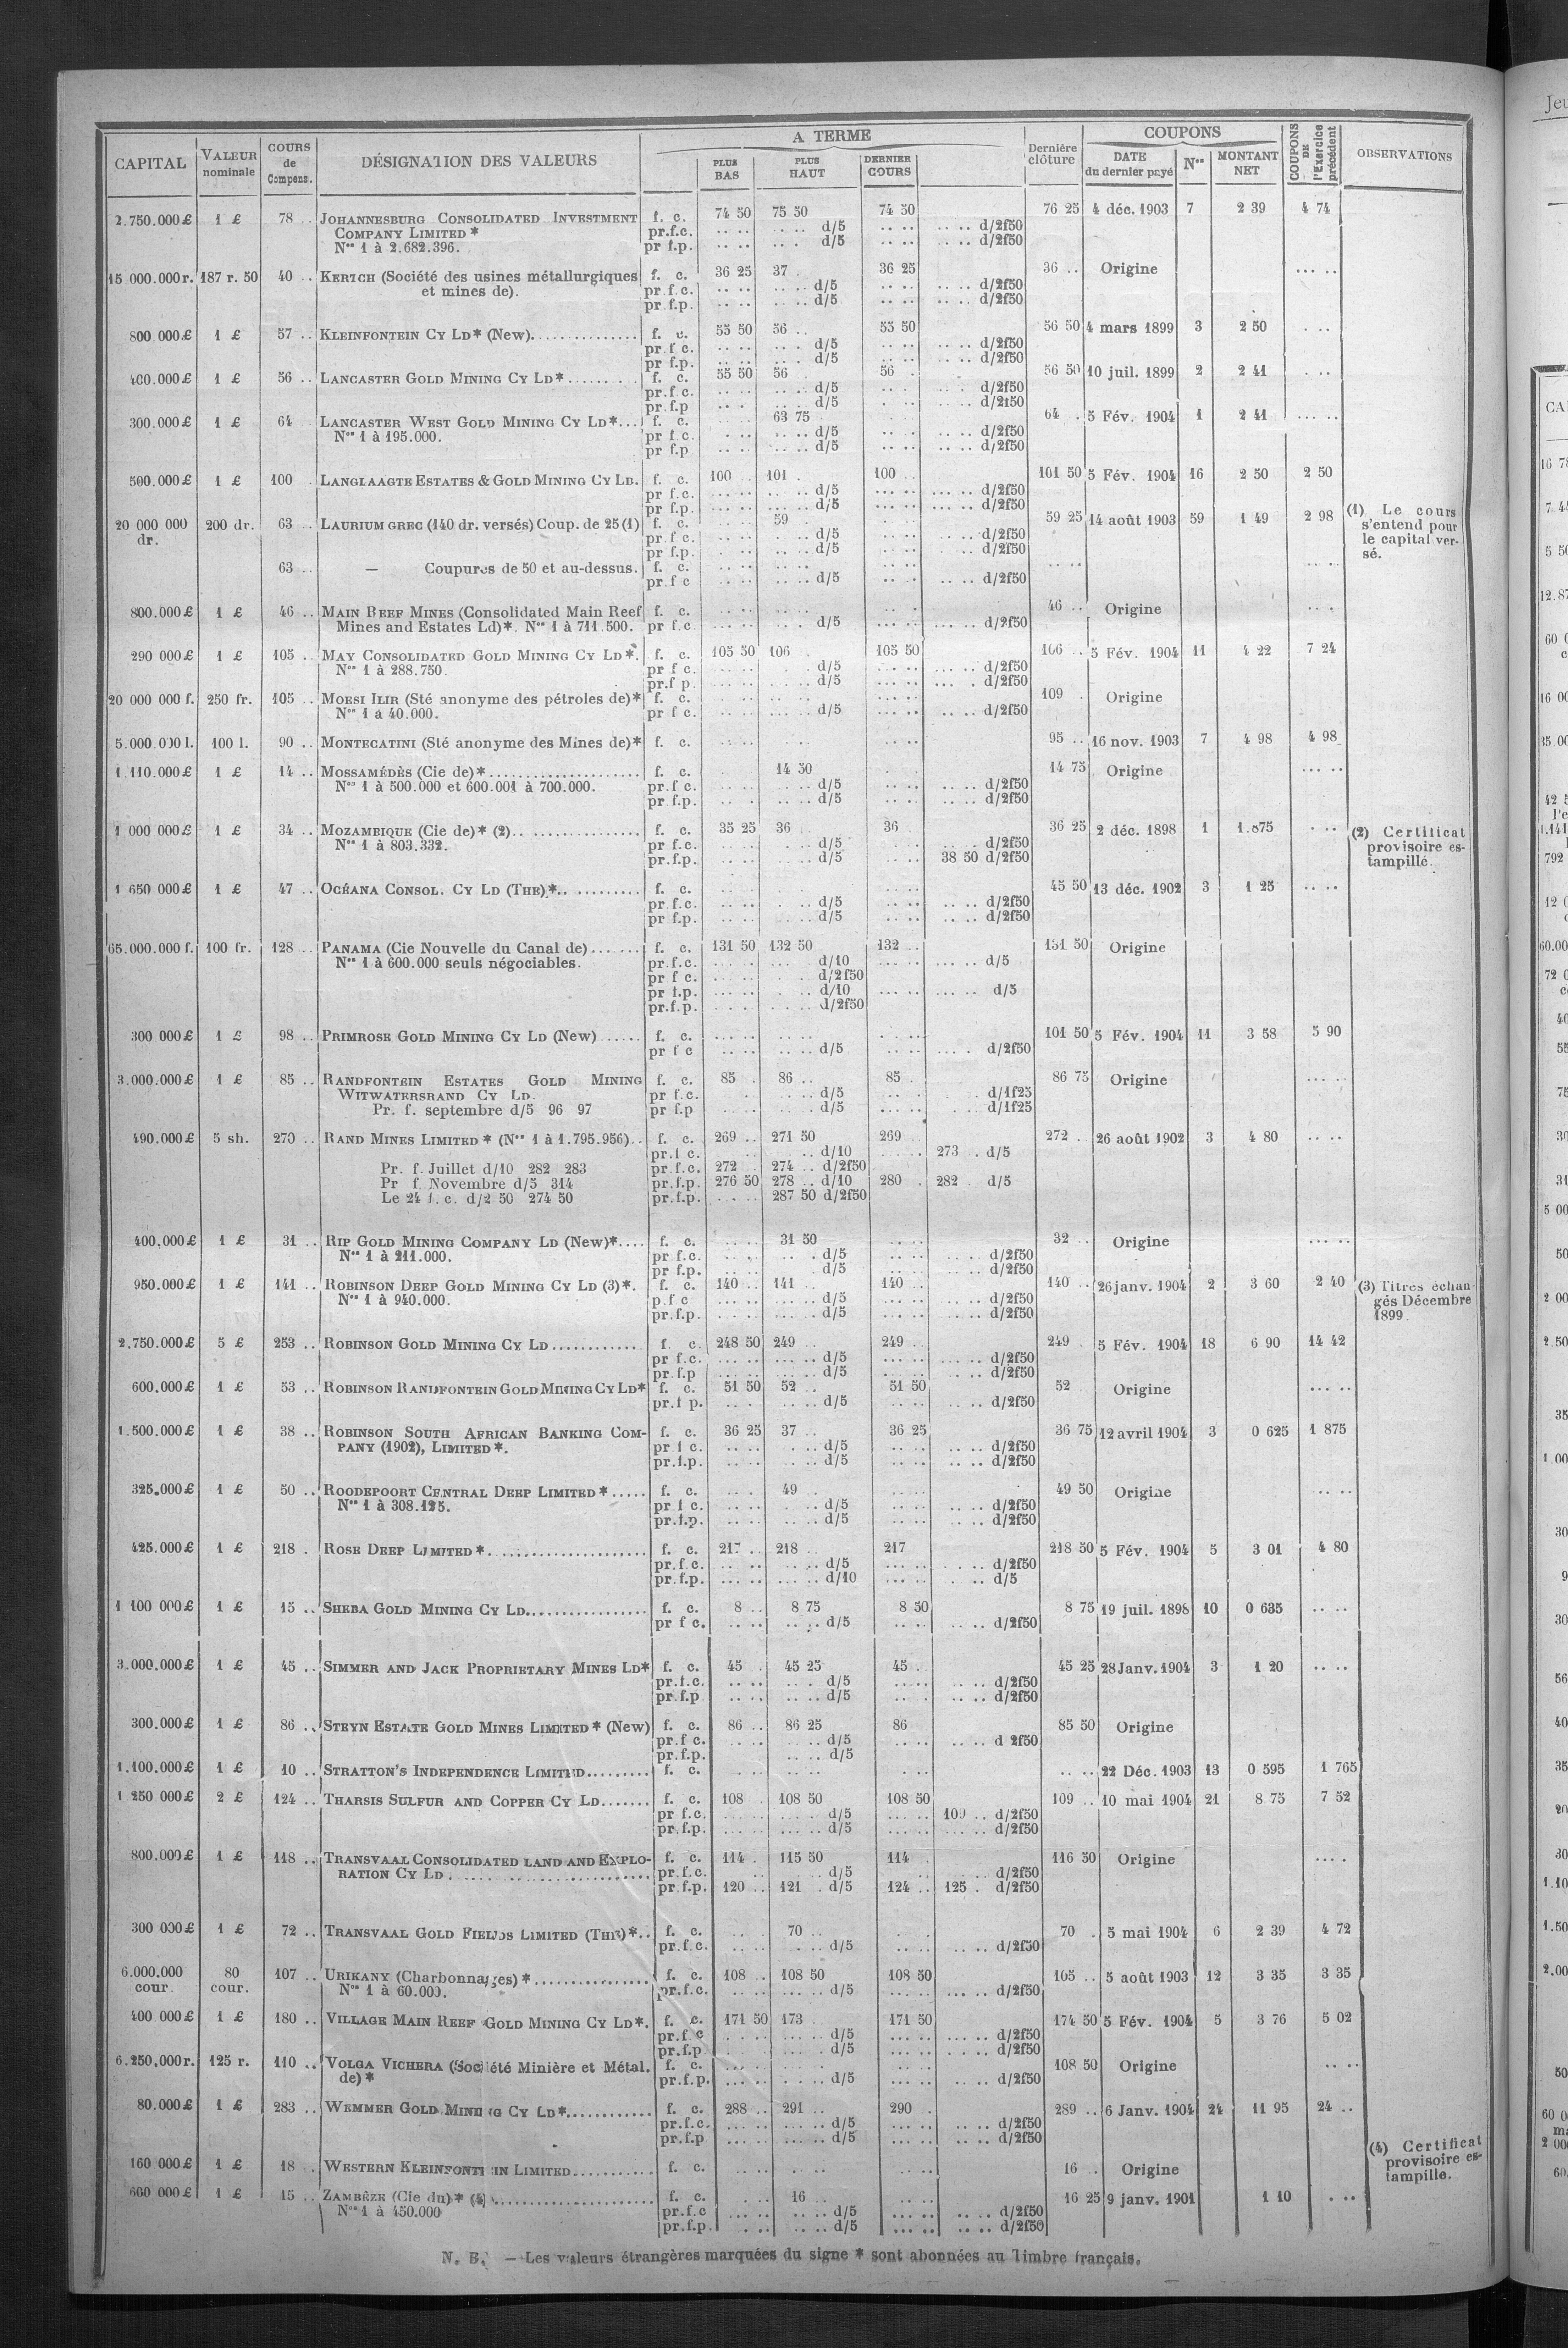 CAPITAL VALEUR nominale COURS de Compens. DÉSIGNATION DES VALEURS A TERME PLUS BAS PLUS HAUT DERNIER COURS Dernière clôture COUPONS DATE du dernier payé Nos MONTANT NET COUPONS DE l'Exercice précédent OBSERVATIONS
2.750.000£ 1 £ 78 .. JOHANNESBURG CONSOLIDATED INVESTMENT f. c. 74 50 75 50 74 50 76 25 4 déc. 1903 7 2 39 4 74
COMPANY LIMITED * pr.f.c. .. .. .. .. d/5 .. .. .. .. d/2f50
Nos 1 à 2.682.396. pr f.p. .. .. .. . d/5 .. .. .. .. d/2f50
15 000.000r. 187 r. 50 40 .. KERTCH (Société des usines métallurgiques f. c. 36 25 37 . 36 25 36 .. Origine ... ..
et mines de). pr.f.c. .. .. .. .. d/5 .. .. .. .. d/2f50
pr.f.p. .. .. .. .. d/5 .. .. .. .. d/2f50
800.000£ 1 £ 57 .. KLEINFONTEIN CY LD* (New). f. c. 55 50 56 .. 55 50 56 50 4 mars 1899 3 2 50 . ..
pr.f c. .. .. .. . d/5 .. .. .. .. d/2f50
pr f.p. .. .. .. . d/5 .. .. .. .. d/2f50
400.000£ 1 £ 56 .. LANCASTER GOLD MINING CY LD* f. c. 55 50 56 . 56 . 56 50 10 juil. 1899 2 2 41 . ..
pr.f c. .. .. .. .. d/5 .. .. .. . d/2f50
pr.f.p .. . .. .. d/5 . .. .. .. d/2f50
300.000£ 1 £ 64 LANCASTER WEST GOLD MINING CY LD*... f. c. 63 75 64 . 5 Fév. 1904 1 2 41 ... ..
Nos 1 à 195.000. pr f c. . .. .. .. d/5 .. . .. .. d/2f50
pr f.p .. .. .. .. d/5 .. .. .. .. d/2f50
500.000£ 1 £ 100 . LANGLAAGTE ESTATES & GOLD MINING CY LD. f. c. 100 .. 101 . 100 .. 101 50 5 Fév. 1904 16 2 50 2 50
pr f c. ... .. ... .. d/5 ... .. ... .. d/2f50
pr f.p. ... .. ... .. d/5 ... .. ... .. d/2f50
20 000 000 200 dr. 63 .. LAURIUM GREC (140 dr. versés) Coup. de 25 (1) f. c. 59 . 59 25 14 août 1903 59 1 49 2 98 (1) Le cours
dr. pr.f c. .. .. . .. d/5 . .. .. .. d/2f50 s'entend pour
pr f.p. .. .. . .. d/5 .. .. .. .. d/2f50 le capital ver-
sé.
63 .. — Coupures de 50 et au-dessus. f. c. .. .. .. .. .. .. .. ..
pr.f c .. .. .. .. d/5 .. . .. .. d/2f50
800.000£ 1 £ 46 .. MAIN REEF MINES (Consolidated Main Reef f. c. .. .. .. .. .. . 46 .. Origine .. .
Mines and Estates Ld)*. Nos 1 à 711.500. pr f.c. ... .. .. . d/5 ... .. ... .. d/2f50
290 000£ 1 £ 105 .. MAY CONSOLIDATED GOLD MINING CY LD*. f. c. 105 50 106 .. 105 50 106 .. 5 Fév. 1904 11 4 22 7 24
Nos 1 à 288.750. pr f c. ... .. . d/5 ... .. ... .. d/2f50
pr.f p. .. .. .. d/5 ... .. ... . d/2f50
20 000 000 f. 250 fr. 105 .. MOESI ILIR (Sté anonyme des pétroles de)* f. c. .. .. .. .. ... .. 109 . Origine
Nos 1 à 40.000. pr f c. .. .. .. .. d/5 ... .. .. .. d/2f50
5.000.000 l. 100 l. 90 .. MONTECATINI (Sté anonyme des Mines de)* f. c. .. .. .. .. .. 95 .. 16 nov. 1903 7 4 98 4 98
1.110.000£ 1 £ 14 .. MOSSAMÉDÈS (Cie de)* f. c. 14 50 14 75 Origine ... ..
Nos 1 à 500.000 et 600.001 à 700.000. pr.f c. .. .. .. .. d/5 .. .. .. .. d/2f50
pr f.p. .. . .. .. d/5 .. .. .. .. d/2f50
1 000 000£ 1 £ 34 .. MOZAMBIQUE (Cie de)* (2) f. c. 35 25 36 . 36 . 36 25 2 déc. 1898 1 1.875 . .. (2) Certificat
Nos 1 à 803.332. pr f.c. .. .. . .. d/5 .. .. .. . d/2f50 provisoire es-
pr.f.p. .. .. .. .. d/5 .. .. 38 50 d/2f50 tampillé.
1 650 000£ 1 £ 47 .. OCÉANA CONSOL. CY LD (THE)* f. c. 45 50 13 déc. 1902 3 1 25 .. ..
pr.f.c. .. .. . .. d/5 .. .. .. .. d/2f50
pr f.p. .. .. .. .. d/5 .. .. .. .. d/2f50
65.000.000 f. 100 fr. 128 .. PANAMA (Cie Nouvelle du Canal de) f. c. 131 50 132 50 132 .. 131 50 Origine
Nos 1 à 600.000 seuls négociables. pr.f.c. ... . ... d/10 ... .. ... .. d/5
pr f c. ... .. . .. d/2f50
pr f.p. ... .. . .. d/10 ... .. ... .. d/5
pr.f.p. ... .. . .. d/2f50
300 000£ 1 £ 98 .. PRIMROSE GOLD MINING CY LD (New) f. c. ... .. .. .. . .. 101 50 5 Fév. 1904 11 3 58 5 90
pr f c .. .. .. .. d/5 .. .. ... . d/2f50
3.000.000£ 1 £ 85 .. RANDFONTEIN ESTATES GOLD MINING f. c. 85 . 86 .. 85 . 86 75 Origine ... ..
WITWATERSRAND CY LD. pr f.c. . .. .. d/5 .. . . d/1f25
Pr. f. septembre d/5 96 97 pr f.p .. .. .. d/5 ... .. . d/1f25
490.000£ 5 sh. 270 .. RAND MINES LIMITED * (Nos 1 à 1.795.956) f. c. 269 .. 271 50 269 .. 272 . 26 août 1902 3 4 80 .. ..
pr.f c. .. d/10 273 . d/5
Pr. f. Juillet d/10 282 283 pr.f.c. 272 274 .. d/2f50
Pr f. Novembre d/5 314 pr.f.p. 276 50 278 .. d/10 280 . 282 . d/5
Le 24 f. c. d/2 50 274 50 pr.f.p. . .. 287 50 d/2f50
400.000£ 1 £ 31 .. RIP GOLD MINING COMPANY LD (New)* f. c. 31 50 32 .. Origine ... ..
Nos 1 à 211.000. pr f.c. .. . .. . d/5 .. .. .. .. d/2f50
pr f.p. .. .. d/5 .. .. .. .. d/2f50
950.000£ 1 £ 141 .. ROBINSON DEEP GOLD MINING CY LD (3)*. f. c. 140 .. 141 .. 140 .. 140 .. 26 janv. 1904 2 3 60 2 40 (3) Titres échan-
Nos 1 à 940.000. p.f c ... .. ... .. d/5 ... .. ... .. d/2f50 gés Décembre
pr.f.p. ... .. ... .. d/5 ... .. ... .. d/2f50 1899.
2.750.000£ 5 £ 253 .. ROBINSON GOLD MINING CY LD f. c. 248 50 249 .. 249 .. 249 . 5 Fév. 1904 18 6 90 14 42
pr f.c. ... .. ... .. d/5 ... .. ... .. d/2f50
pr.f.p ... .. ... .. d/5 ... .. ... .. d/2f50
600.000£ 1 £ 53 .. ROBINSON RANDFONTEIN GOLD MINING CY LD* f. c. 51 50 52 .. 51 50 52 Origine ... ..
pr.f p. .. . .. .. d/5 .. .. .. .. d/2f50
1.500.000£ 1 £ 38 .. ROBINSON SOUTH AFRICAN BANKING COM- f. c. 36 25 37 .. 36 25 36 75 12 avril 1904 3 0 625 1 875
PANY (1902), LIMITED *. pr f c. .. .. . .. d/5 .. .. .. .. d/2f50
pr.f.p. .. .. .. .. d/5 .. .. .. .. d/2f50
325.000£ 1 £ 50 .. ROODEPOORT CENTRAL DEEP LIMITED * f. c. 49 .. 49 50 Origine .. ..
Nos 1 à 308.125. pr f c. .. .. .. .. d/5 .. .. .. .. d/2f50
pr.f.p. .. .. .. .. d/5 .. .. .. .. d/2f50
425.000£ 1 £ 218 . ROSE DEEP LIMITED * f. c. 217 .. 218 .. 217 218 50 5 Fév. 1904 5 3 01 4 80
pr.f.c. ... .. ... .. d/5 ... .. . .. .. d/2f50
pr.f.p. ... .. ... .. d/10 ... .. . .. d/5
1 100 000£ 1 £ 15 .. SHEBA GOLD MINING CY LD f. c. 8 .. 8 75 8 50 8 75 19 juil. 1898 10 0 635 .. ..
pr f c. .. .. .. .. d/5 .. .. .. .. d/2f50
3.000.000£ 1 £ 45 .. SIMMER AND JACK PROPRIETARY MINES LD* f. c. 45 . 45 25 45 . 45 25 28 Janv. 1904 3 1 20 .. ..
pr.f.c. .. .. .. . d/5 .. .. .. d/2f50
pr.f.p .. .. .. .. d/5 .. . .. .. d/2f50
300.000£ 1 £ 86 .. STEYN ESTATE GOLD MINES LIMITED * (New) f. c. 86 .. 86 25 86 85 50 Origine
pr.f c. .. .. .. .. d/5 .. .. .. .. d 2f50
pr.f.p. .. .. d/5
1.100.000£ 1 £ 10 .. STRATTON'S INDEPENDENCE LIMITED f. c. .. .. .. .. .. .. .. .. 22 Déc. 1903 13 0 595 1 765
1.250 000£ 2 £ 124 .. THARSIS SULFUR AND COPPER CY LD f. c. 108 . 108 50 108 50 109 .. 10 mai 1904 21 8 75 7 52
pr f.c. ... .. ... .. d/5 ... .. 109 .. d/2f50
pr.f.p. ... .. ... .. d/5 ... .. ... .. d/2f50
800.000£ 1 £ 118 .. TRANSVAAL CONSOLIDATED LAND AND EXPLO- f. c. 114 . 115 50 114 116 50 Origine .. ..
RATION CY LD pr.f.c. .. d/5 .. d/2f50
pr.f.p. 120 .. 121 . d/5 124 .. 125 . d/2f50
300 000£ 1 £ 72 .. TRANSVAAL GOLD FIELDS LIMITED (THE)* f. c. 70 .. 70 . 5 mai 1904 6 2 39 4 72
pr.f.c. .. .. . .. d/5 .. .. .. .. d/2f50
6.000.000 80 107 .. URIKANY (Charbonnages) * f. c. 108 .. 108 50 108 50 105 .. 5 août 1903 12 3 35 3 35
cour. cour. Nos 1 à 60.000. pr.f.c. ... .. ... .. d/5 ... .. ... .. d/2f50
400 000£ 1 £ 180 .. VILLAGE MAIN REEF GOLD MINING CY LD*. f. c. 171 50 173 . 171 50 174 50 5 Fév. 1904 5 3 76 5 02
pr.f c . .. ... .. d/5 ... .. ... .. d/2f50
pr.f.p . .. .. d/5 ... .. ... .. d/2f50
6.250.000r. 125 r. 110 .. VOLGA VICHERA (Société Minière et Métal. f. c. 108 50 Origine .. ..
de) * pr.f.p. ... .. . .. d/5 ... .. .. .. d/2f50
80.000£ 1 £ 283 .. WEMMER GOLD MINING CY LD* f. c. 288 .. 291 .. 290 .. 289 .. 6 Janv. 1904 24 11 95 24 ..
pr.f.c. ... .. ... .. d/5 ... .. .. .. d/2f50
pr.f.p ... .. ... .. d/5 ... .. .. .. d/2f50
160 000£ 1 £ 18 . WESTERN KLEINFONTEIN LIMITED f. c. .. .. .. .. .. .. 16 . Origine (4) Certificat
provisoire es-
tampille.
600 000£ 1 £ 15 .. ZAMBÈZE (Cie du) * (4) f. c. 16 .. 16 25 9 janv. 1901 1 10 . ..
Nos 1 à 450.000 pr.f.c ... .. .. .. d/5 ... .. .. .. d/2f50
pr.f.p. . .. .. .. d/5 ... .. .. .. d/2f50
N. B. — Les valeurs étrangères marquées du signe * sont abonnées au Timbre français.